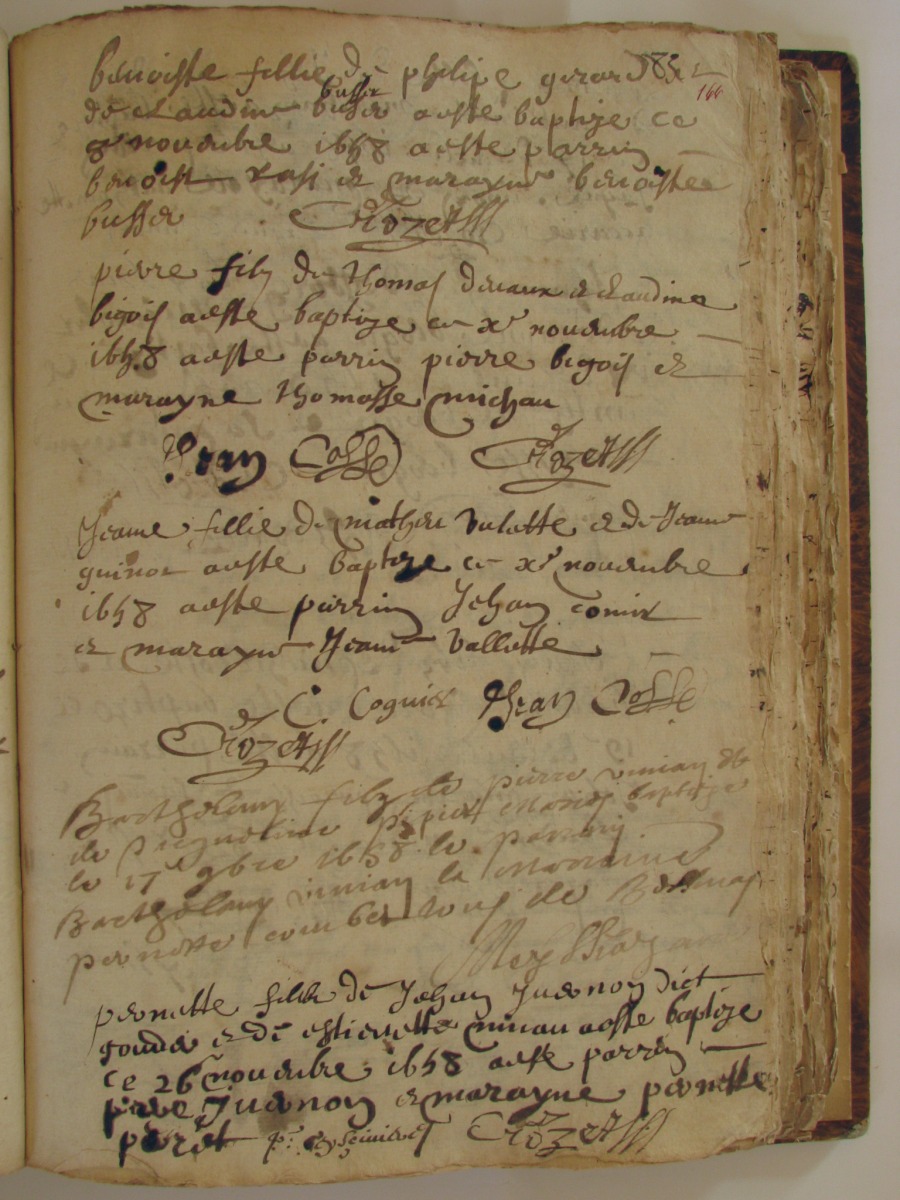 benoiste fillie de philipe gerard &
166
de claudine buffer a este baptize ce
8 novembre 1658 a este parrin
benoist & marayne benoiste
buffer Crozet
pierre filz de thomas devaux & claudine
bigois a este baptize ce xe novembre
1658 a este parrin pierre bigois et
marayne thomasse michau
Jean Cosse Crozet
Jeanne fillie de mathieu valette & de Jeanne
a este baptize ce xe novembre
1658 a este parrin Jehan
et marayne Jeanne vallette
C. Coguiet Jean Cosse
Crozet
Barthelemy filz de pierre vivian &
de Jacqueline baptize
le 17e 9bre 1658 le parrin
Barthelemy vivian la marraine
pernette combet tous de
pernette fillie de Jehan Juvernon dict
& de estiennette a este baptize
ce 26 novembre 1658 a este parrin
pierre Juvernon et marayne pernette
peret Crozet